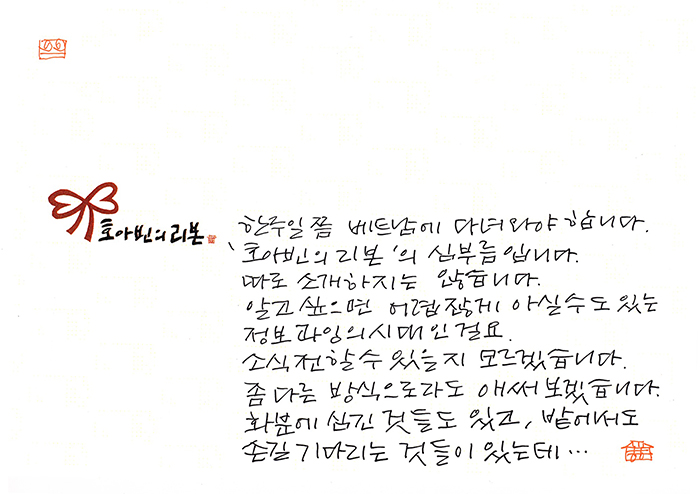 호아빈의 리본
한주일쯤 베트남에 다녀와야 합니다.
'호아빈의 리본'의 심부름입니다.
따로 소개하지는 않습니다.
알고 싶으면 어렵잖게 아실 수도 있는
정보과잉의 시대인걸요.
소식 전할 수 있을지 모르겠습니다.
좀 다른 방식으로라도 애써 보겠습니다.
화분에 심긴 것들도 있고, 밭에서도
손길 기다리는 것들이 있는데…